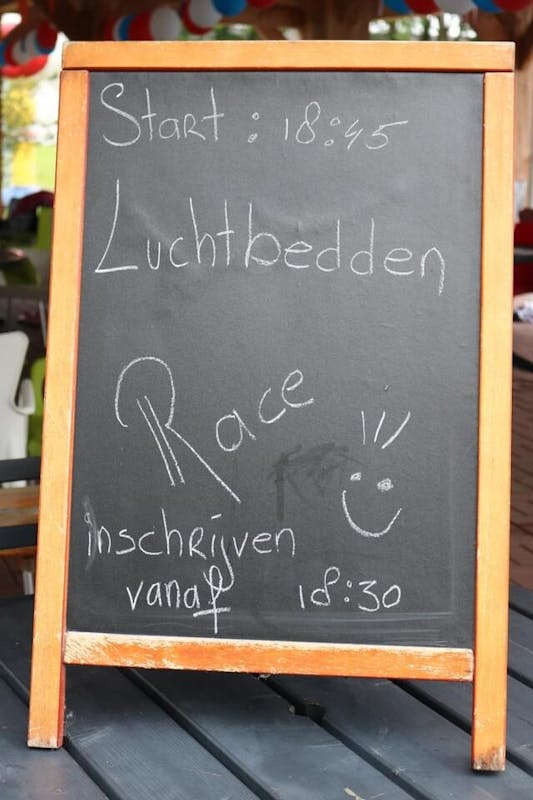 Start : 18:45
Luchtbedden
Race
inschrijven
vanaf 18:30